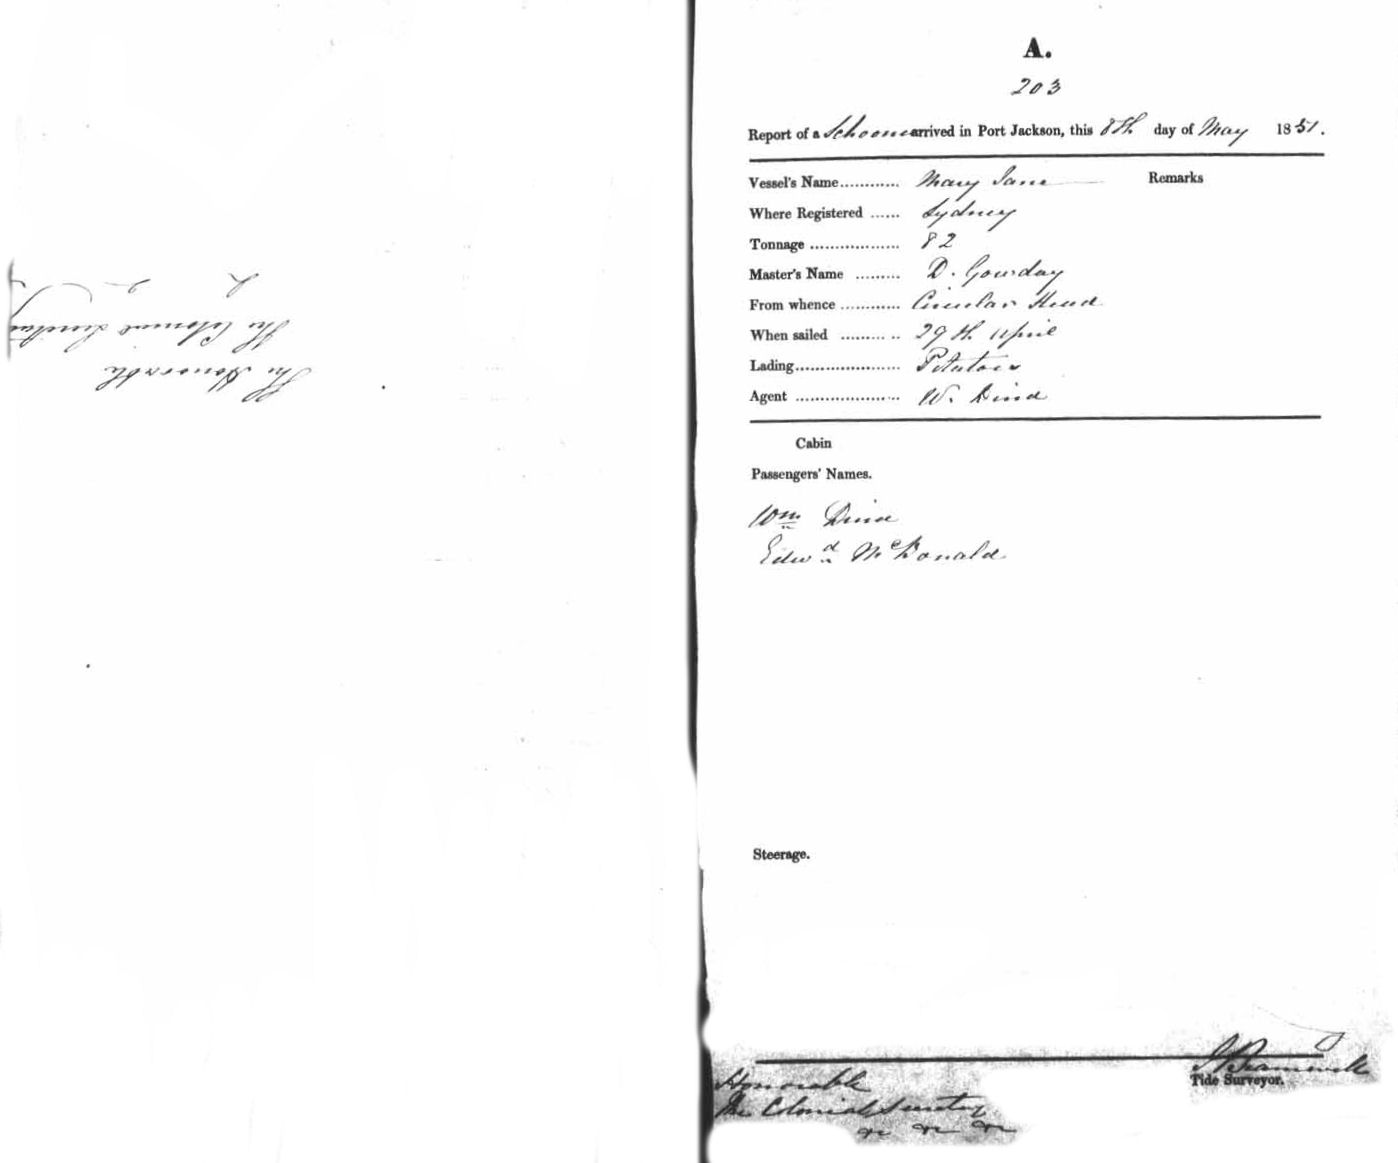 The Honorable
The Colonial Secretary
A.
203
Report of a Schooner arrived in Port Jackson, this 8th day of May 1851.
Vessel's Name............ Mary Jane Remarks
Where Registered ...... Sydney
Tonnage .................. 82
Master's Name ......... D. Gourday
From whence ............ Circular Head
When sailed ......... .. 29th April
Lading..................... Potatoes
Agent ..................... W. Dind
Cabin
Passengers' Names.
Wm Dind
Edwd McDonald
Steerage.
Tide Surveyor.
Honorable
The Colonial Secretary